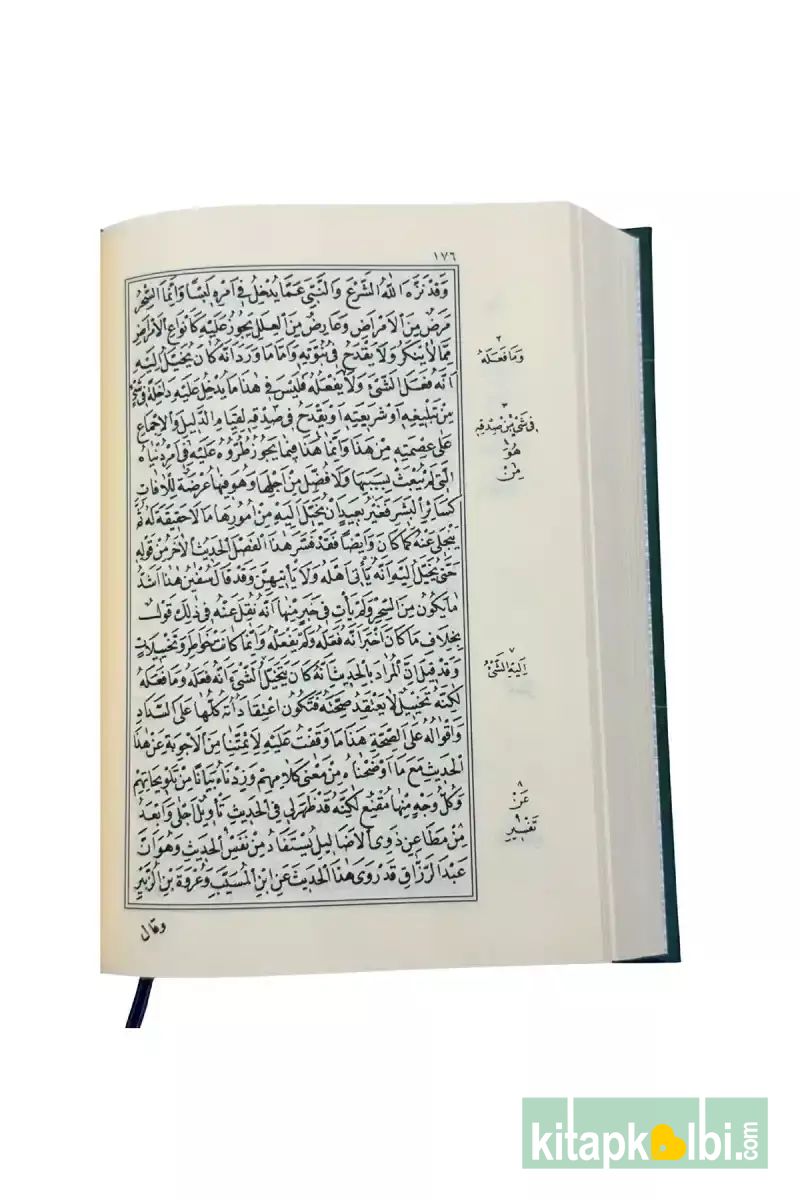 ١٧٦
وَقَدْ نَزَّهَ اللهُ الشَّرْعَ وَالنَّبِيَّ عَمَّا يُدْخِلُ فِى اَمْرِهِ لَبْسًا وَاِنَّمَا السِّحْرُ
مَرَضٌ مِنَ الْاَمْرَاضِ وَعَارِضٌ مِنَ الْعِلَلِ يَجُوزُ عَلَيْهِ كَاَنْوَاعِ الْاَمْرَاضِ
مِمَّا لَا يُنْكَرُ وَلَا يَقْدَحُ فِى نُبُوَّتِهِ وَاَمَّا مَا وَرَدَ اَنَّهُ كَانَ يُخَيَّلُ اِلَيْهِ
اَنَّهُ فَعَلَ الشَّىْءَ وَلَا يَفْعَلُهُ فَلَيْسَ فِى هٰذَا مَا يُدْخِلُ عَلَيْهِ دَاخِلَةً فِى شَىْءٍ
مِنْ تَبْلِيغِهِ اَوْ شَرِيعَتِهِ اَوْ يَقْدَحُ فِى صِدْقِهِ لِقِيَامِ الدَّلِيلِ وَالْاِجْمَاعِ
عَلَى عِصْمَتِهِ مِنْ هٰذَا وَاِنَّمَا هٰذَا فِيمَا يَجُوزُ طُرُوُّهُ عَلَيْهِ فِى اَمْرِ دُنْيَاهُ
الَّتِى لَمْ يُبْعَثْ بِسَبَبِهَا وَلَا فُضِّلَ مِنْ اَجْلِهَا وَهُوَ فِيهَا عُرْضَةٌ لِلْاٰفَاتِ
كَسَائِرِ الْبَشَرِ فَغَيْرُ بَعِيدٍ اَنْ يُخَيَّلَ اِلَيْهِ مِنْ اُمُورِهَا مَا لَا حَقِيقَةَ لَهُ ثُمَّ
يَنْجَلِى عَنْهُ كَمَا كَانَ وَاَيْضًا فَقَدْ فَسَّرَ هٰذَا الْفَصْلَ الْحَدِيثُ الْاٰخَرُ مِنْ قَوْلِهِ
حَتَّى يُخَيَّلَ اِلَيْهِ اَنَّهُ يَأْتِى اَهْلَهُ وَلَا يَأْتِيهِنَّ وَقَدْ قَالَ سُفْيٰنُ هٰذَا اَشَدُّ
مَا يَكُونُ مِنَ السِّحْرِ وَلَمْ يَأْتِ فِى خَبَرٍ مِنْهَا اَنَّهُ نُقِلَ عَنْهُ فِى ذٰلِكَ قَوْلٌ
بِخِلَافِ مَا كَانَ اَخْبَرَ اَنَّهُ فَعَلَهُ وَلَمْ يَفْعَلْهُ وَاِنَّمَا كَانَتْ خَوَاطِرَ وَتَخْيِيلَاتٍ
وَقَدْ قِيلَ اِنَّ الْمُرَادَ بِالْحَدِيثِ اَنَّهُ كَانَ يَتَخَيَّلُ الشَّىْءَ اَنَّهُ فَعَلَهُ وَمَا فَعَلَهُ
لٰكِنَّهُ تَخْيِيلٌ لَا يَعْتَقِدُ صِحَّتَهُ فَتَكُونُ اعْتِقَادَاتُهُ كُلُّهَا عَلَى السَّدَادِ
وَاَقْوَالُهُ عَلَى الصِّحَّةِ هٰذَا مَا وَقَفْتُ عَلَيْهِ لِاَئِمَّتِنَا مِنَ الْاَجْوِبَةِ عَنْ هٰذَا
الْحَدِيثِ مَعَ مَا اَوْضَحْنَاهُ مِنْ مَعْنَى كَلَامِهِمْ وَزِدْنَاهُ بَيَانًا مِنْ تَلْوِيحَاتِهِمْ
وَكُلُّ وَجْهٍ مِنْهَا مُقْنِعٌ لٰكِنَّهُ قَدْ ظَهَرَ لِى فِى الْحَدِيثِ تَأْوِيلٌ اَجْلَى وَاَبْعَدُ
مِنْ مَطَاعِنِ ذَوِى الْاَضَالِيلِ يُسْتَفَادُ مِنْ نَفْسِ الْحَدِيثِ وَهُوَ اَنَّ
عَبْدَ الرَّزَّاقِ قَدْ رَوَى هٰذَا الْحَدِيثَ عَنِ ابْنِ الْمُسَيِّبِ وَعُرْوَةَ بْنِ الزُّبَيْرِ
وقال
٢
وَمَا فَعَلَهُ
٣
فِى شَىْءٍ مِنْ صِدْقِهِ
هُوَ
مِنْ
٧
اِلَيْهِ الشَّىْءُ
٨
عَنْ
٩
تَفْسِيرِ
kitapkalbi.com